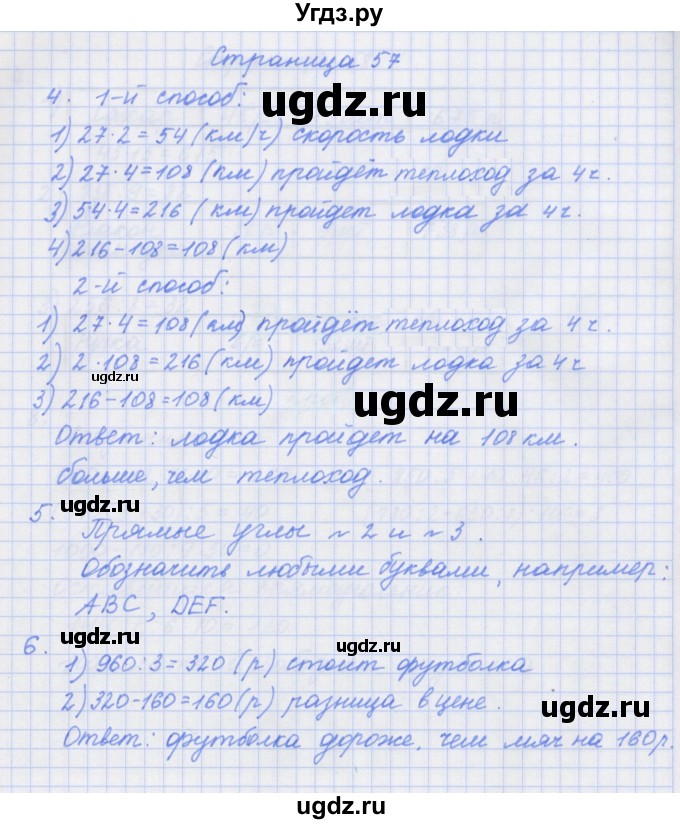 Угдз.ру
Страница 57
4. 1-й способ:
ugdz.ru
1) 27·2=54 (км/ч) скорость лодки
2) 27·4=108 (км) пройдёт теплоход за 4ч.
3) 54·4=216 (км) пройдет лодка за 4ч.
4) 216-108=108 (км)
2-й способ:
1) 27·4=108 (км) пройдёт теплоход за 4ч.
2) 2·108=216 (км) пройдет лодка за 4ч
ugdz.ru
3) 216-108=108 (км)
ugdz.ru
Ответ: лодка пройдет на 108 км.
больше, чем теплоход.
ugdz.ru
5. Прямые углы ~2 и ~3.
Обозначить любыми буквами, например:
ABC, DEF.
ugdz.ru
ugdz.ru
6.
1) 960:3=320 (р) стоит футболка
2) 320-160=160 (р) разница в цене.
ugdz.ru
Ответ: футболка дороже, чем мяч на 160р.
ugdz.ru